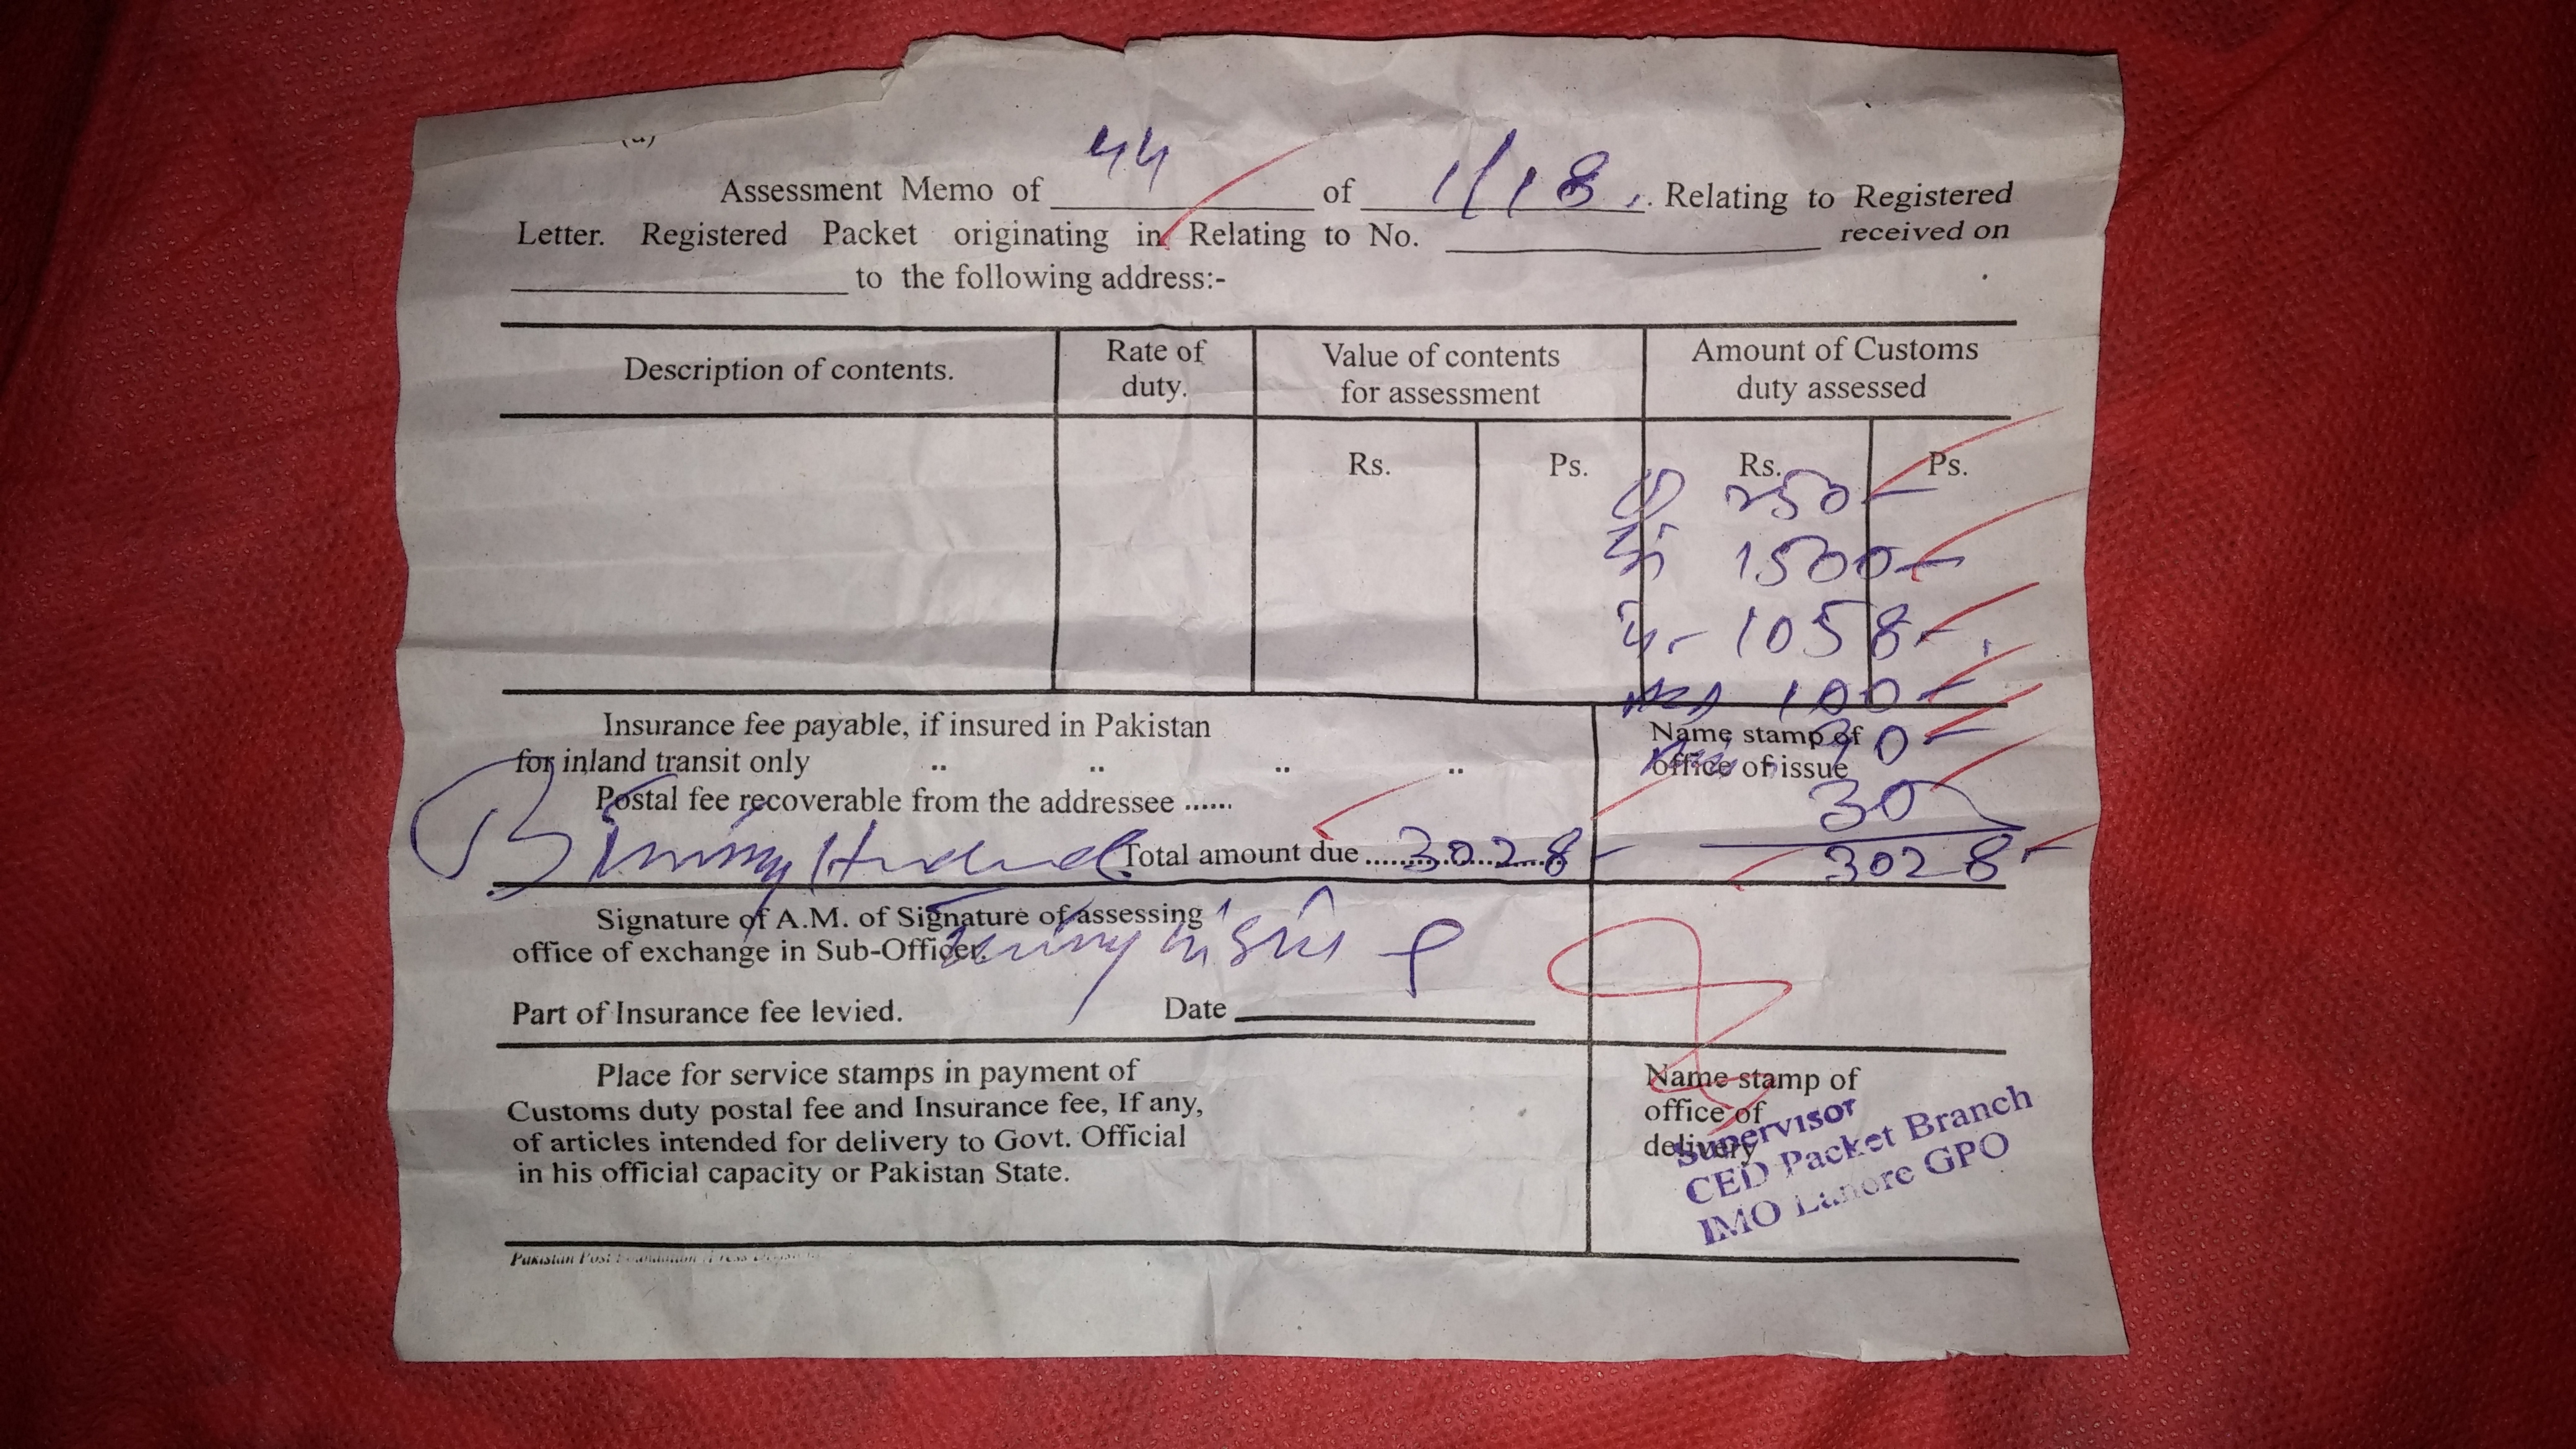 Assessment Memo of 44 of 1/18. Relating to Registered
Letter. Registered Packet originating in Relating to No. received on
to the following address:-
Description of contents. Rate of duty. Value of contents for assessment Amount of Customs duty assessed
Rs. Ps. Rs. Ps.
250
1500
1058
100
90
30
3028
Insurance fee payable, if insured in Pakistan
for inland transit only .. .. .. ..
Postal fee recoverable from the addressee ......
Total amount due ...... 3028
Name stamp of
office of issue
Signature of A.M. of Signature of assessing
office of exchange in Sub-Officer.
Part of Insurance fee levied. Date
Place for service stamps in payment of
Customs duty postal fee and Insurance fee, If any,
of articles intended for delivery to Govt. Official
in his official capacity or Pakistan State.
Name stamp of
office of
delivery
Supervisor
CED Packet Branch
IMO Lahore GPO
Pakistan Post Foundation